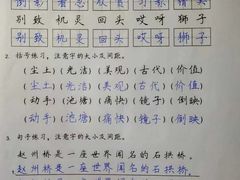 别致 机灵 回头 哎呀 狮子
别致 机灵 回头 哎呀 狮子
2. 括号练习，注意字的大小及间距。
(尘土)(光洁)(美观)(古代)(价值)
(尘土)(光洁)(美观)(古代)(价值)
(动手)(池塘)(痛快)(镜子)(倒映)
(动手)(池塘)(痛快)(镜子)(倒映)
3. 句子练习，注意字的大小及间距。
赵州桥是一座世界闻名的石拱桥。
赵州桥是一座世界闻名的石拱桥。